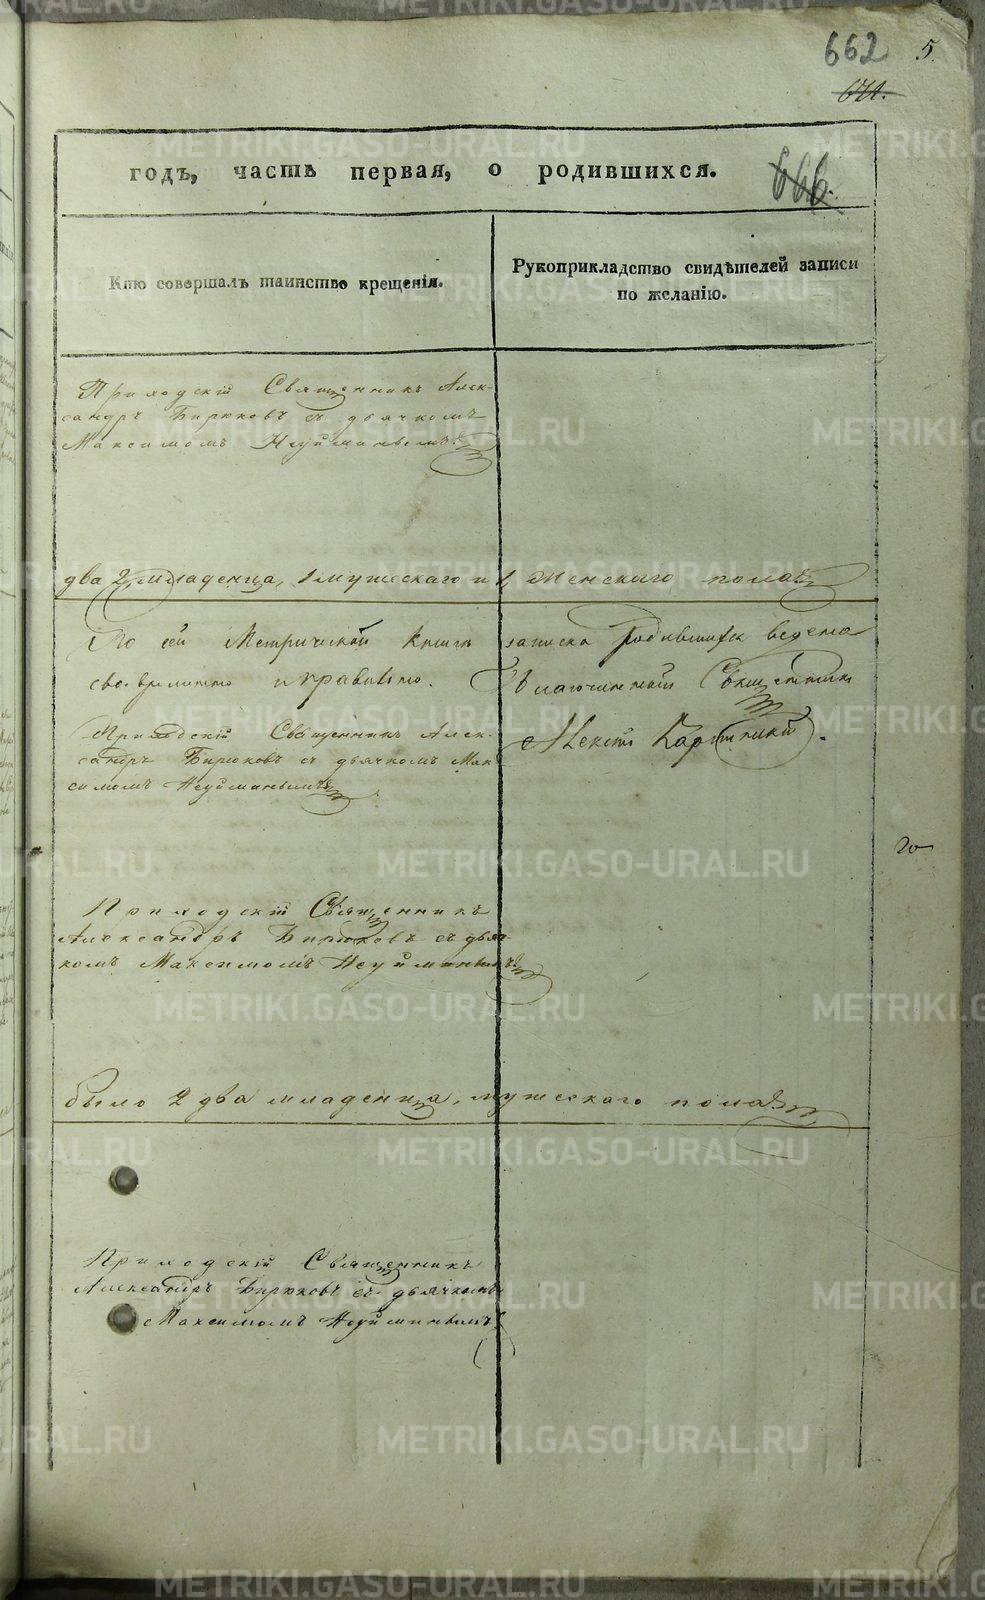 662 5.
666.
годъ, часть первая, о родившихся.
Кто совершалъ таинство крещенія.
Рукоприкладство свидѣтелей записи
по желанію.
Приходскій Священникъ Алек-
сандръ Бирюковъ съ дьячкомъ
Максимомъ Неуйминымъ.
два 2 младенца, 1 мужескаго и 1, женскаго пола
По сей Метрической книгѣ записка родившихся ведена
своевременно и правильно. Благочинный Священникъ
Приходскій Священникъ Алек-
сандръ Бирюковъ съ дьячкомъ Мак-
симомъ Неуйминымъ
Приходскій Священникъ
Александръ Бирюковъ съ дьяч-
комъ Максимомъ Неуйминымъ
было 2 два младенца, мужескаго пола
Приходскій Священникъ
Александръ Бирюковъ съ дьячкомъ
Максимомъ Неуйминымъ
METRIKI.GASO-URAL.RU